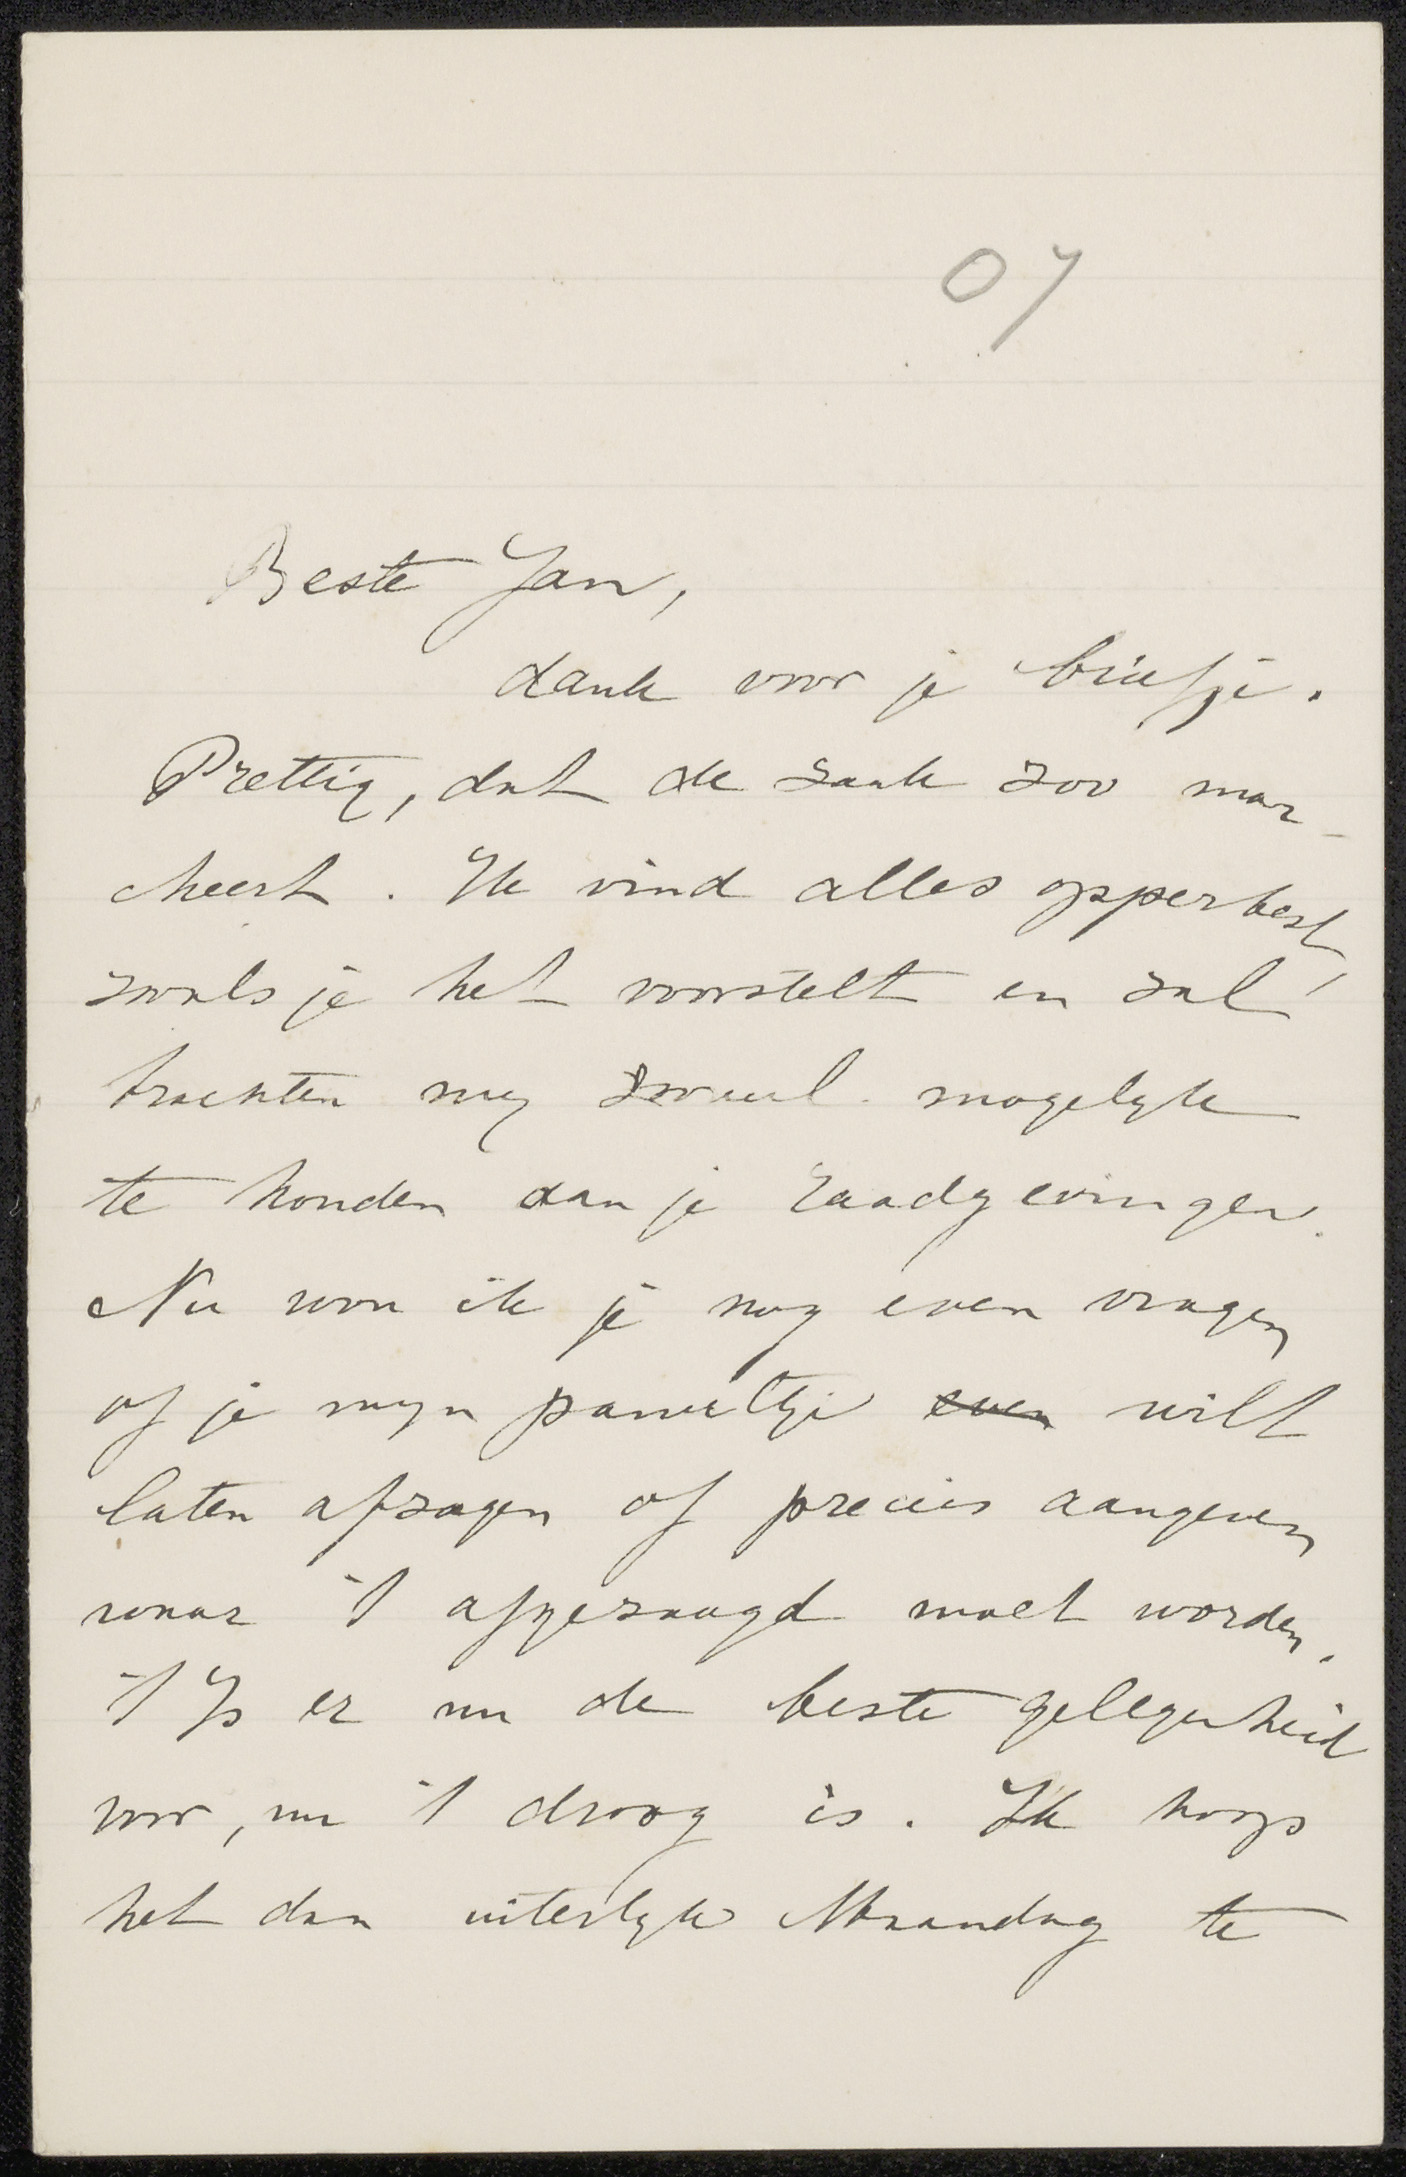 07
Beste Jan,
dank voor je briefje.
Prettig, dat de zaak zoo mar-
cheert. Ik vind alles opperbest,
zooals je het voorstelt en zal
trachten mij zooveel mogelijk
te houden aan je raadgevingen.
Nu wou ik je nog even vragen
of je mijn paneeltje even wilt
laten afzagen of precies aangeven
waar 't afgezaagd moet worden.
't Is er nu de beste gelegenheid
voor, nu 't droog is. Ik hoop
het dan uiterlijk Maandag te